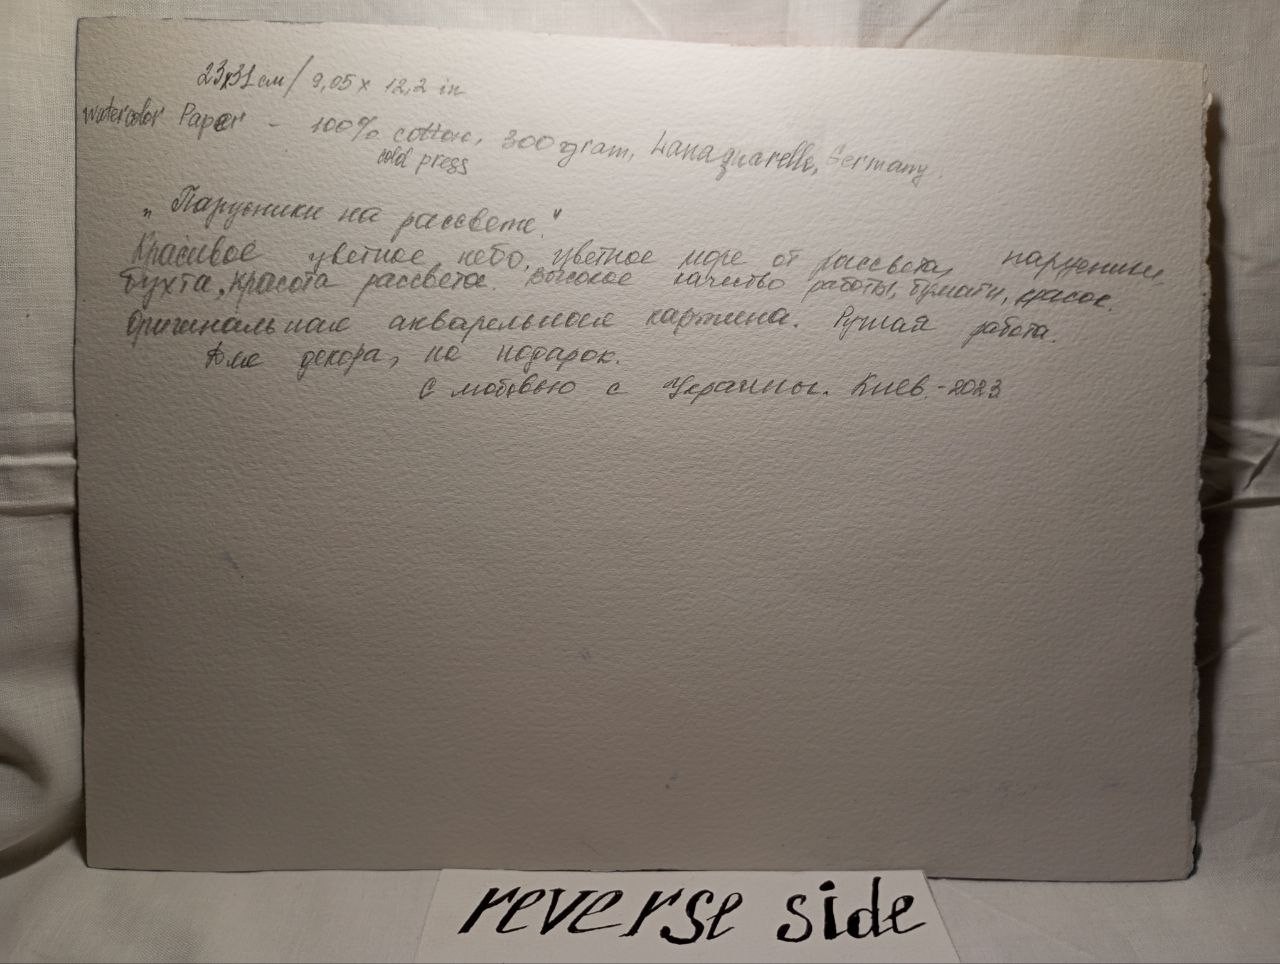 23x31 см / 9,05 x 12,2 in
watercolor Paper - 100% cotton, 300 gram, Lanaquarelle, Germany.
cold press
„Парусники на рассвете."
Красивое цветное небо, цветное море от рассвета, парусники,
бухта, красота рассвета. Высокое качество работы, бумаги, красок.
Оригинальная акварельная картина. Ручная работа.
Для декора, на подарок.
С любовью с Украины. Киев. - 2023
reverse side